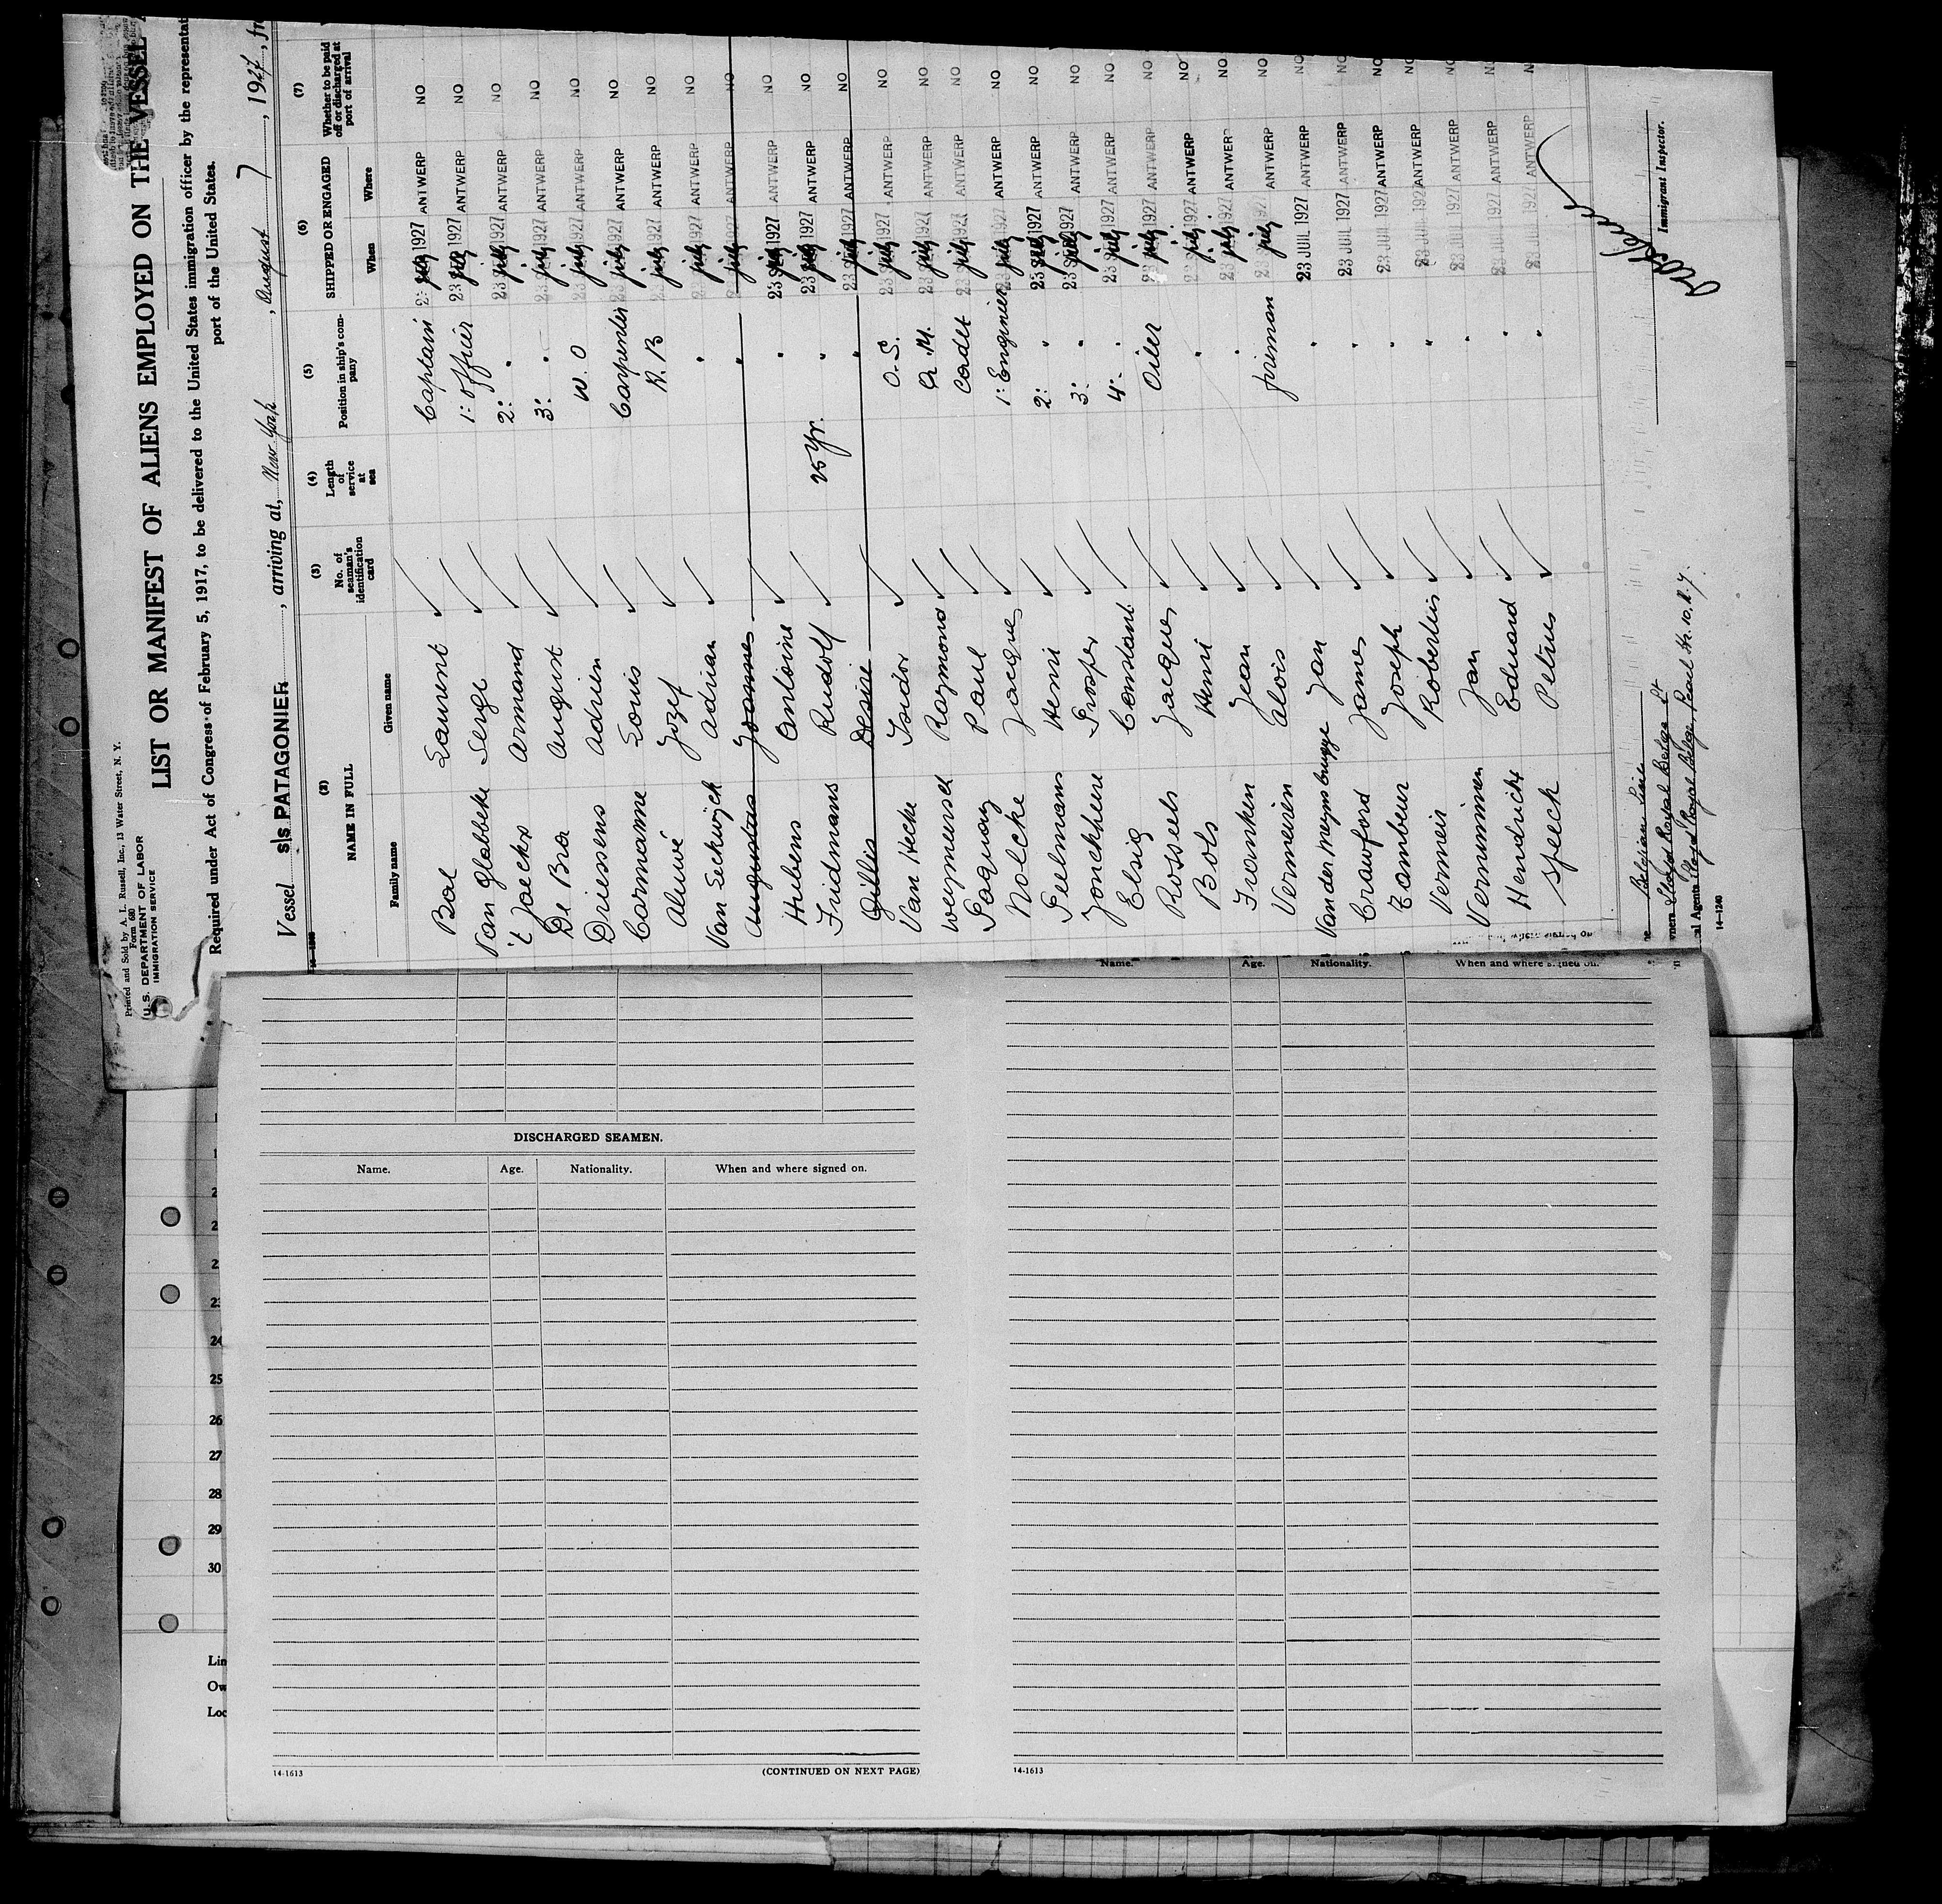 Printed and Sold by A. L. Russell, Inc., 13 Water Street, N. Y.
Form 680
U. S. DEPARTMENT OF LABOR
IMMIGRATION SERVICE
LIST OR MANIFEST OF ALIENS EMPLOYED ON THE VESSEL
Required under Act of Congress of February 5, 1917, to be delivered to the United States immigration officer by the representat
port of the United States.
Vessel s|s PATAGONIER, arriving at, New York, August 7, 1927, fr
(2) (3) (4) (5) (6) (7)
NAME IN FULL No. of seaman's identification card Length of service at sea Position in ship's company SHIPPED OR ENGAGED Whether to be paid off or discharged at port of arrival
Family name Given name When Where
Boel Laurent Captain 23 July 1927 ANTWERP NO
Van Glabbeke Serge 1: officer 23 July 1927 ANTWERP NO
't Jaeckx Armand 2: " 23 July 1927 ANTWERP NO
De Bra August 3: " 23 July 1927 ANTWERP NO
Driessens Adrien W. O 23 July 1927 ANTWERP NO
Cormanne Louis Carpenter 23 July 1927 ANTWERP NO
Aluwé Jozef R. B 23 July 1927 ANTWERP NO
Van Eeckwijck Adrian " 23 July 1927 ANTWERP NO
Augustus Joannes " 23 July 1927 ANTWERP NO
Hubens Antoine " 23 July 1927 ANTWERP NO
Fridmans Rudolf 25 yr. " 23 July 1927 ANTWERP NO
Gillis Desiré " 23 July 1927 ANTWERP NO
Van Hecke Isidor O. S. 23 July 1927 ANTWERP NO
Weymeersch Raymond 23 July 1927 ANTWERP NO
Paquay Paul Cadet 23 July 1927 ANTWERP NO
Nolcke Jacques 1: Engineer 23 July 1927 ANTWERP NO
Peelmans Henri 2: " 23 July 1927 ANTWERP NO
Jonckheere Prosper 3: " 23 July 1927 ANTWERP NO
Elsig Constant 4: " 23 July 1927 ANTWERP NO
Rosseels Jacques Oiler 23 July 1927 ANTWERP NO
Bols Henri " 23 July 1927 ANTWERP NO
Franken Jean " 23 July 1927 ANTWERP NO
Vermeiren Alois fireman 23 July 1927 ANTWERP NO
Van der Meynsbrugge Jan " 23 JUIL 1927 ANTWERP NO
Crawford James " 23 JUIL 1927 ANTWERP NO
Tambeur Joseph " 23 JUIL 1927 ANTWERP NO
Vermeir Robertus " 23 JUIL 1927 ANTWERP NO
Vernimmen Jan " 23 JUIL 1927 ANTWERP NO
Hendrickx Eduard " 23 JUIL 1927 ANTWERP NO
Speeck Petrus " 23 JUIL 1927 ANTWERP NO
Belgian Line
wners Lloyd Royal Belge
al Agents Lloyd Royal Belge, Pearl Str. 10, N. Y.
14-1240
Immigrant Inspector.
Name. Age. Nationality. When and where signed on.
DISCHARGED SEAMEN.
Name. Age. Nationality. When and where signed on.
24
25
26
27
28
29
30
Lin
Ow
Loc
14-1613
(CONTINUED ON NEXT PAGE)
14-1613